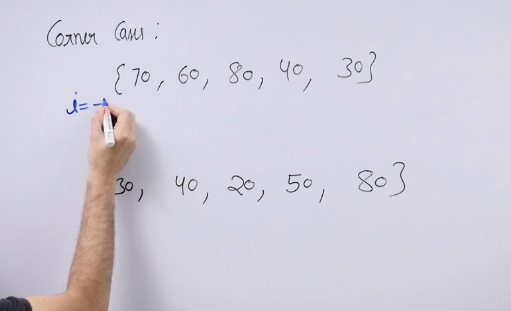 Corner Cases :
{70, 60, 80, 40, 30}
i=-
30, 40, 20, 50, 80}